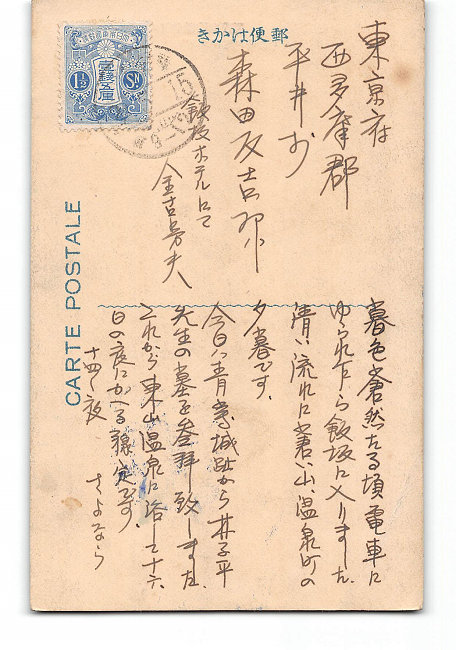 郵便はかき
東京府
西多摩郡
平井村
森田友吉
飯坂ホテルにて
CARTE POSTALE
1½ Sn.
暮色蒼然たる頃電車に
ゆられ乍ら飯坂に入りました
清い流れに蒼い山、温泉町の
夕暮です。
今日ハ青葉城趾から林子平
先生の墓を参拝致しました
これから東山温泉に浴して十六
日の夜にかへる予定です。
十四、夜
さよなら